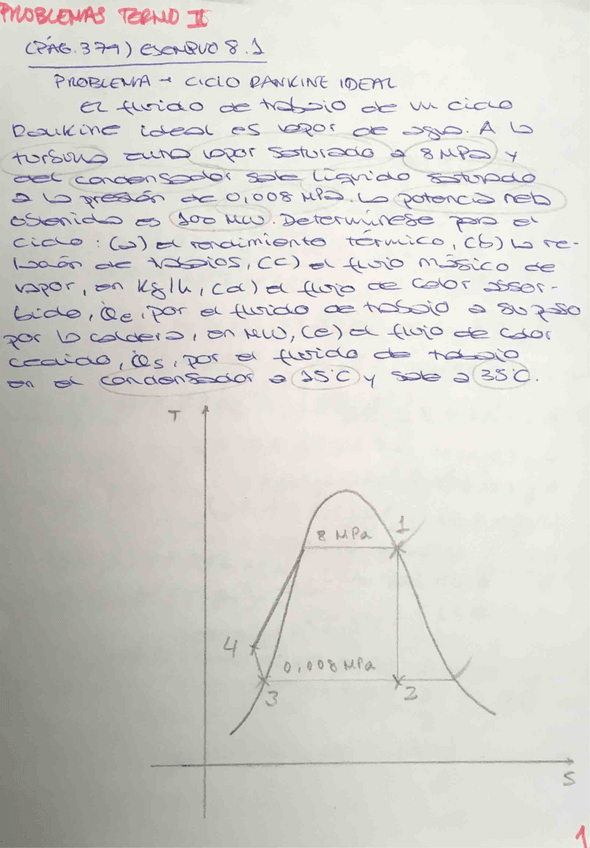 PROBLEMAS TERMO II
(PÁG.379) EJEMPLO 8.1
PROBLEMA → CICLO RANKINE IDEAL
El fluido de trabajo de un ciclo
Rankine ideal es vapor de agua. A la
turbina entra vapor saturado a 8 MPa y
del condensador sale líquido saturado
a la presión de 0,008 MPa. La potencia neta
obtenida es 100 MW. Determínese para el
ciclo: (a) el rendimiento térmico, (b) la re-
lación de trabajos, (c) el flujo másico de
vapor, en Kg/h, (d) el flujo de calor absor-
bido, Q̇e, por el fluido de trabajo a su paso
por la caldera, en MW, (e) el flujo de calor
cedido, Q̇s, por el fluido de trabajo
en el condensador a 15°C y sale a 35°C.
T
8 MPa
1
4
0,008 MPa
3
2
S
1